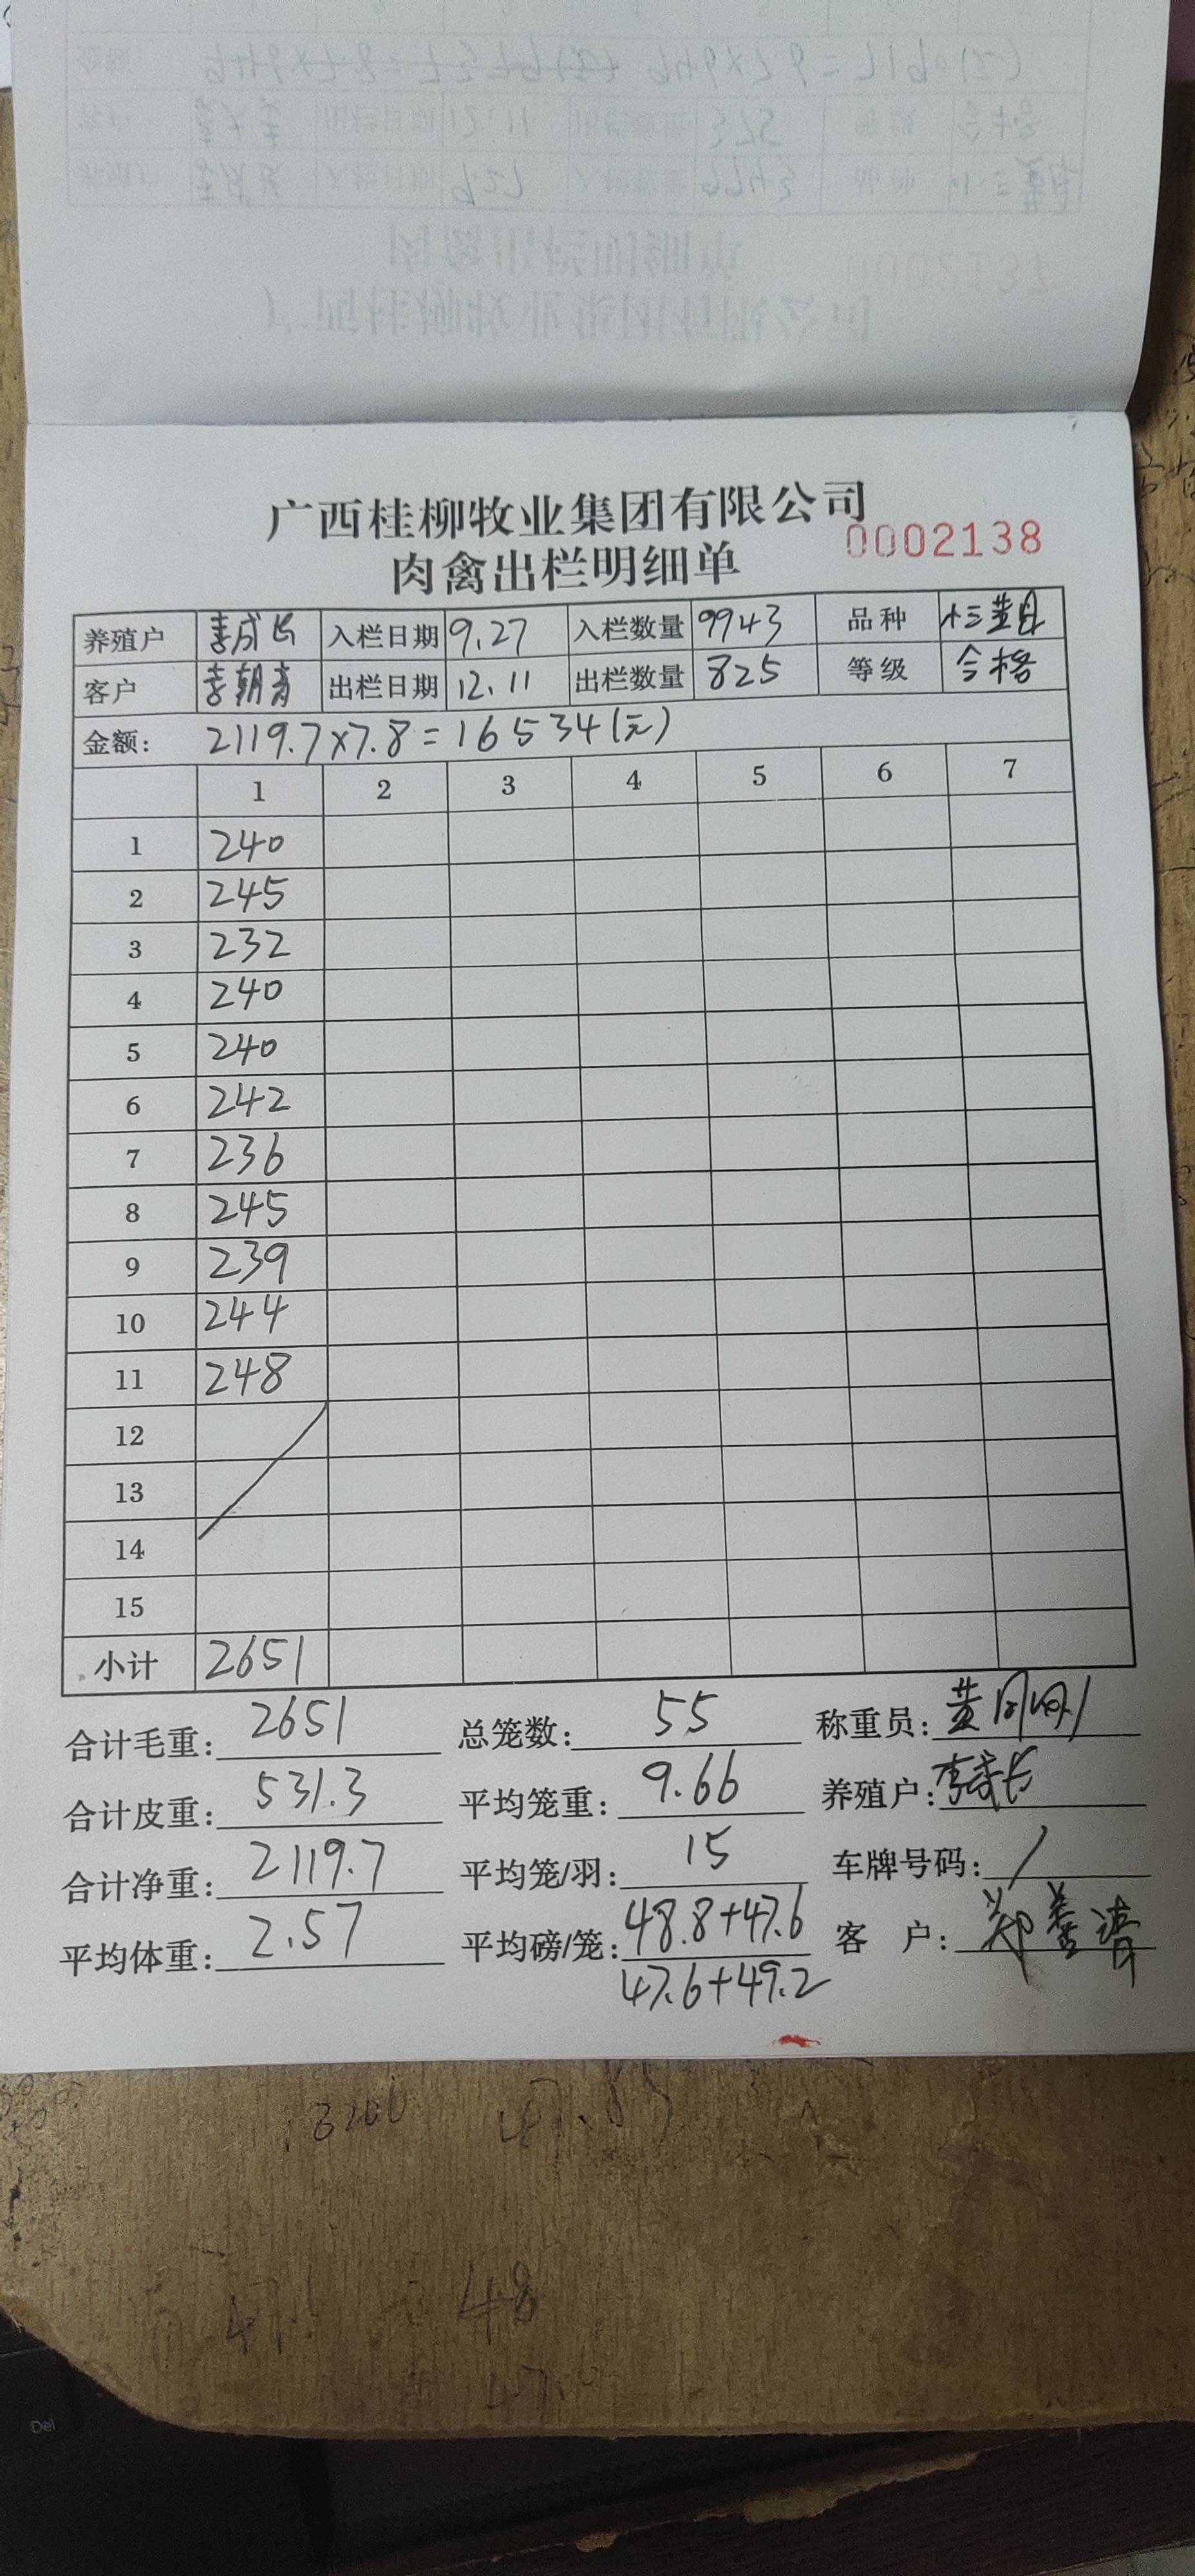 广西桂柳牧业集团有限公司
肉禽出栏明细单 0002138
养殖户 李成长 入栏日期 9.27 入栏数量 9943 品种
客户 李朝清 出栏日期 12.11 出栏数量 825 等级 合格
金额: 2119.7×7.8=16534(元)
1 2 3 4 5 6 7
1 240
2 245
3 232
4 240
5 240
6 242
7 236
8 245
9 239
10 244
11 248
12
13
14
15
小计 2651
合计毛重: 2651 总笼数: 55 称重员: 黄
合计皮重: 531.3 平均笼重: 9.66 养殖户: 李成长
合计净重: 2119.7 平均笼/羽: 15 车牌号码: /
平均体重: 2.57 平均磅/笼: 48.8+47.6 客 户: 郑善清
47.6+49.2
3200
48
Del